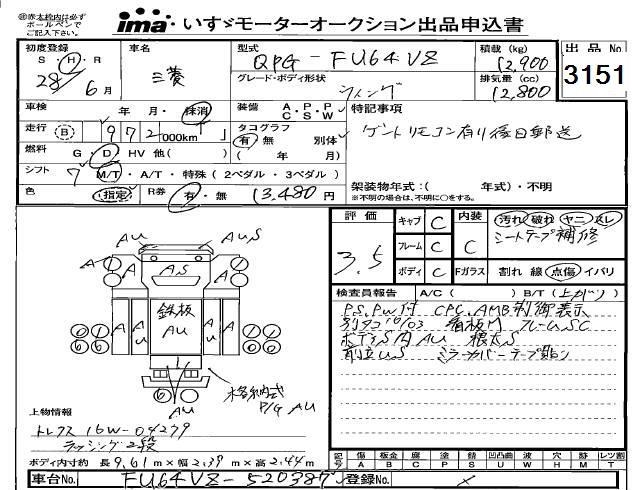 ㊟赤太枠内は必ず
ボールペンで
ご記入下さい。
ima いすゞモーターオークション出品申込書
初度登録
S・H・R
28年 6月
車名
三菱
型式
QPG-FU64VZ
グレード・ボディ形状
ウィング
積載 (kg)
12,900
排気量 (cc)
12,800
出品No
3151
車検
年 月・抹消
装備
A・P・P
C・S・W
特記事項
ゲートリモコン有り後日郵送
走行 (B)
972
000km
タコグラフ
有・無 別体
( 年 月)
燃料
G・D・HV 他( )
シフト
7 M/T・A/T・特殊 (2ペダル・3ペダル)
架装物年式:( 年式)・不明
※不明の場合は、不明に○をする。
色
(指定)
R券
有・無
13,480円
評価
3.5
キャブ C
フレーム C
ボディ C
内装
C
Fガラス
汚れ 破れ ヤニ スレ
シートテープ補修
割れ 線 点傷 イバリ
検査員報告
A/C( ) B/T(上がり)
P.S.P.W付 CPC.AMB制御表示
別タコ10/03 看板内 フレームSC
ボディS内AU 根太S
前立US ミラーカバーテープ貼り
AU
AUS
A
AS
A
A
鉄板
AU
A
AU
格納式
P/G AU
上物情報
トレクス 16W-04279
ラッシング2段
ボディ内寸約 長9.61m×幅2.39m×高2.44m
記号
傷 板金 腐 塗 錆 凹凸凹 波 穴 跡 レツ割
A B C P S U W H M T
車台No.
FU64VZ-520387
登録No.